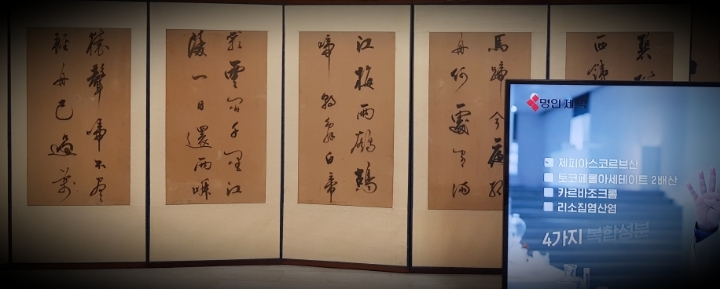 馬蹄今夜扁
舟何處宿滿
江梅雨鷓鴣
啼朝辭白帝
彩雲間千里江
陵一日還兩岸
猿聲啼不盡
輕舟已過萬
명인제약
제피아스코르브산
토코페롤아세테이트 2배산
카르바조크롬
리소짐염산염
4가지 복합성분